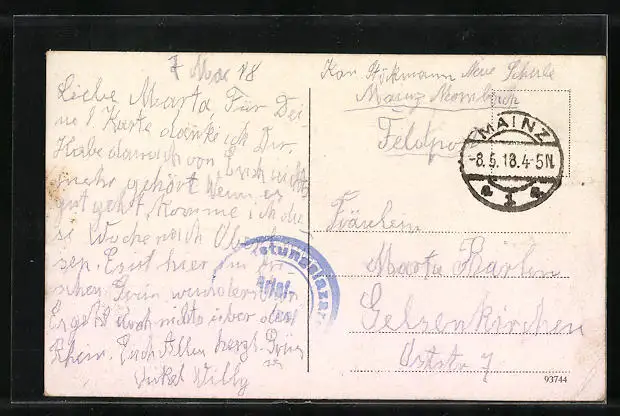 7 Mai 18
Liebe Marta, Für Dei-
ne l. Karte danke ich Dir.
Habe danach von Euch nichts
mehr gehört. Wenn es
gut geht, komme ich die-
se Woche nach
Es ist hier im fri-
schen Grün wunderschön
Es geht doch nichts über den
Rhein. Euch Allen herzl. Grüs
se
Onkel Willy
Kan. Neue Schule
Mainz Mombach
Feldpost
MAINZ
-8.5.18.4-5N.
* 1 *
Fräulein
Marta
Gelsenkirchen
Oststr. 7
93744